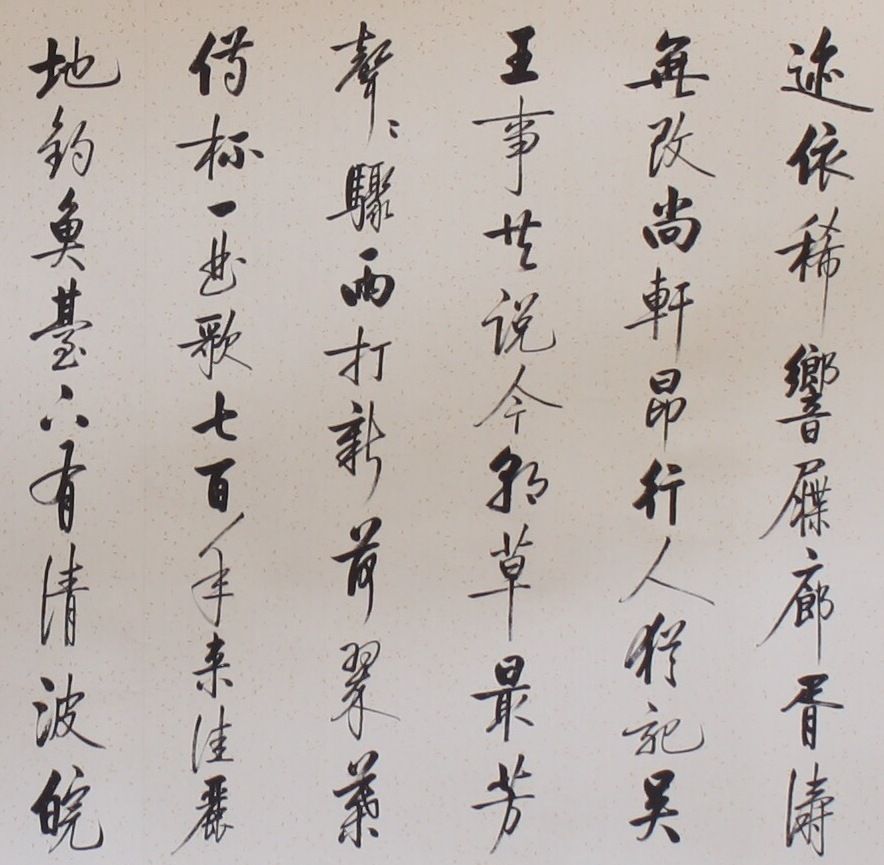 迹依稀響屧廊胥濤
無改尚軒昂行人猶記吴
王事共说今朝草最芳
聲〻驟雨打新荷翠葉
借杯一曲歌七百年来佳麗
地釣魚臺下有清波皖